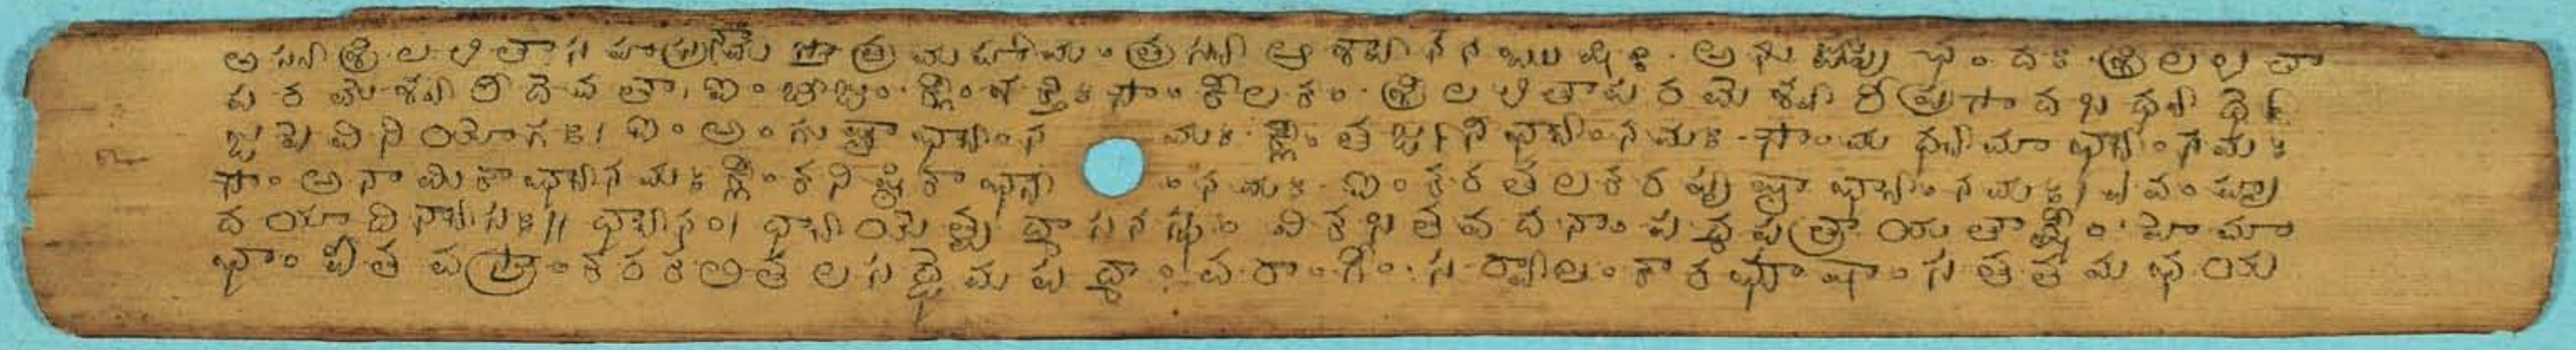 అస్య శ్రీలలితాసహస్రనామస్తోత్రమహామంత్రస్య ఆశ్వాన నఋషిః. అనుష్టుప్ఛందః. శ్రీలలితా
పరమేశ్వరీదేవతా. ఐం బీజం. క్లీం శక్తిః సౌః కీలకం. శ్రీలలితాపరమేశ్వరీప్రసాదసిధ్యర్థే
జపే వినియోగః। ఐం అంగుష్ఠాభ్యాం నమః. క్లీం తర్జనీభ్యాం నమః. సౌం మధ్యమాభ్యాం నమః
సౌం అనామికాభ్యాం నమః క్లీం కనిష్ఠికాభ్యాం నమః. ఐం కరతలకరపృష్ఠాభ్యాం నమః। ఏవం హృ
దయాదిన్యాసః॥ ధ్యానం। ధ్యాయేత్పద్మాసనస్థాం వికసితవదనాం పద్మపత్రాయతాక్షీం. హేమా
భాం పీతవస్త్రాం కరకలితలసద్ధేమపద్మాం వరాంగీం. సర్వాలంకారభూషాం సతతమభయ